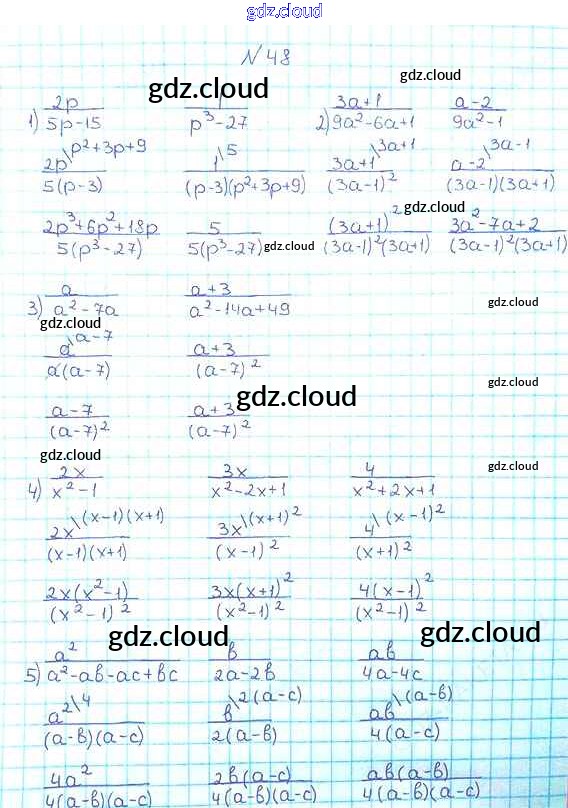 gdz.cloud
N 48
gdz.cloud gdz.cloud
1) 2p/(5p-15) 1/(p³-27) 2) (3a+1)/(9a²-6a+1) (a-2)/(9a²-1)
2p\p²+3p+9 /(5(p-3)) 1\5 /((p-3)(p²+3p+9)) 3a+1\3a+1 /(3a-1)² a-2\3a-1 /((3a-1)(3a+1))
gdz.cloud
(2p³+6p²+18p)/(5(p³-27)) 5/(5(p³-27)) (3a+1)²/((3a-1)²(3a+1)) (3a²-7a+2)/((3a-1)²(3a+1))
gdz.cloud
3) a/(a²-7a) (a+3)/(a²-14a+49)
gdz.cloud gdz.cloud
a\a-7 /(a(a-7)) (a+3)/(a-7)²
gdz.cloud gdz.cloud
(a-7)/(a-7)² (a+3)/(a-7)²
gdz.cloud gdz.cloud gdz.cloud
4) 2x/(x²-1) 3x/(x²-2x+1) 4/(x²+2x+1)
2x\(x-1)(x+1) /((x-1)(x+1)) 3x\(x+1)² /(x-1)² 4\(x-1)² /(x+1)²
2x(x²-1)/(x²-1)² 3x(x+1)²/(x²-1)² 4(x-1)²/(x²-1)²
gdz.cloud gdz.cloud
5) a²/(a²-ab-ac+bc) b/(2a-2b) ab/(4a-4c)
a²\4 /((a-b)(a-c)) b\2(a-c) /(2(a-b)) ab\(a-b) /(4(a-c))
4a²/(4(a-b)(a-c)) 2b(a-c)/(4(a-b)(a-c)) ab(a-b)/(4(a-b)(a-c))